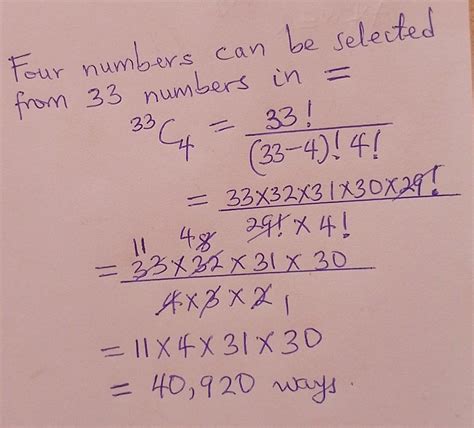 Four numbers can be selected
from 33 numbers in =
³³C₄ = 33! / (33-4)! 4!
= 33×32×31×30×29! / 29! × 4!
11 4 8
= 33×32×31×30 / 4×3×2 1
= 11×4×31×30
= 40,920 ways.